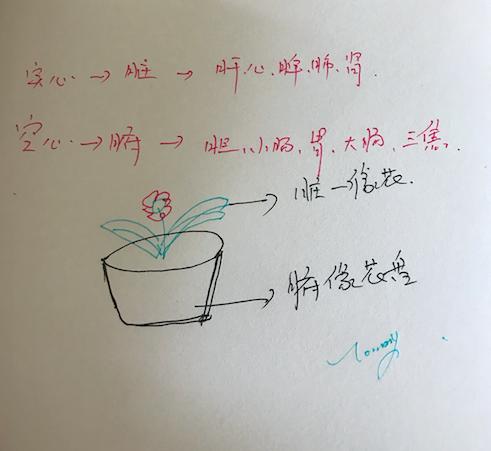 实心 → 脏 → 肝、心、脾、肺、肾.
空心 → 腑 → 胆、小肠、胃、大肠、三焦.
脏一像花.
腑像花盆